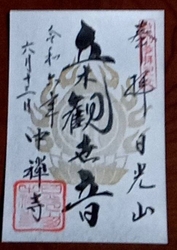 奉拝 日光山
立木観世音
中禪寺
令和六年
六月